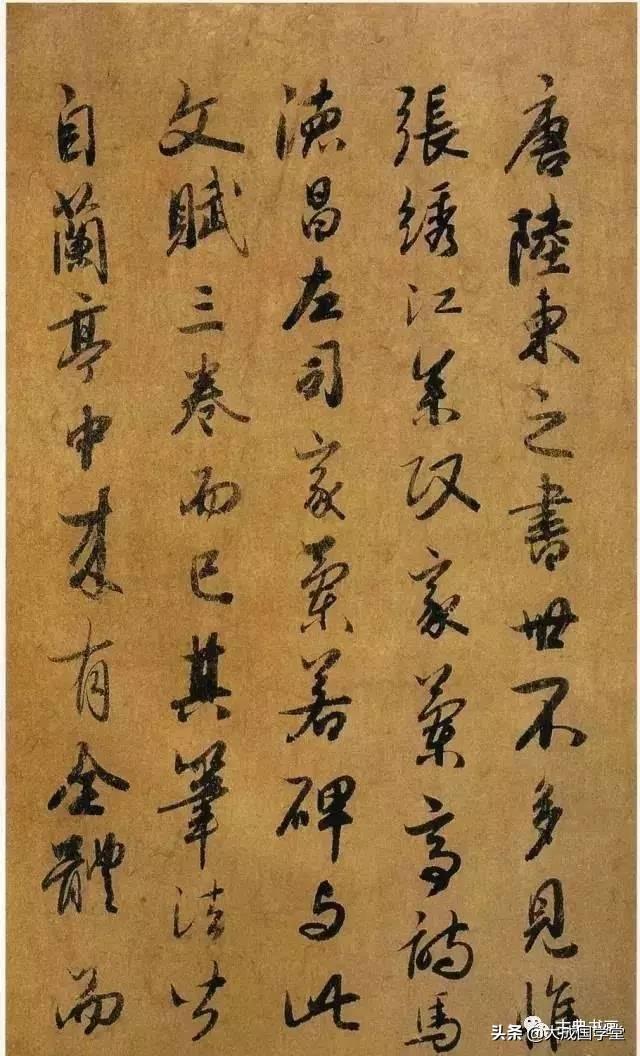 唐陸柬之書世不多見惟
張綉江參政家蘭亭詩馬
德昌左司家蘭若碑与此
文賦三卷而已其筆法皆
自蘭亭中来有全體而
头条 @大成国学堂